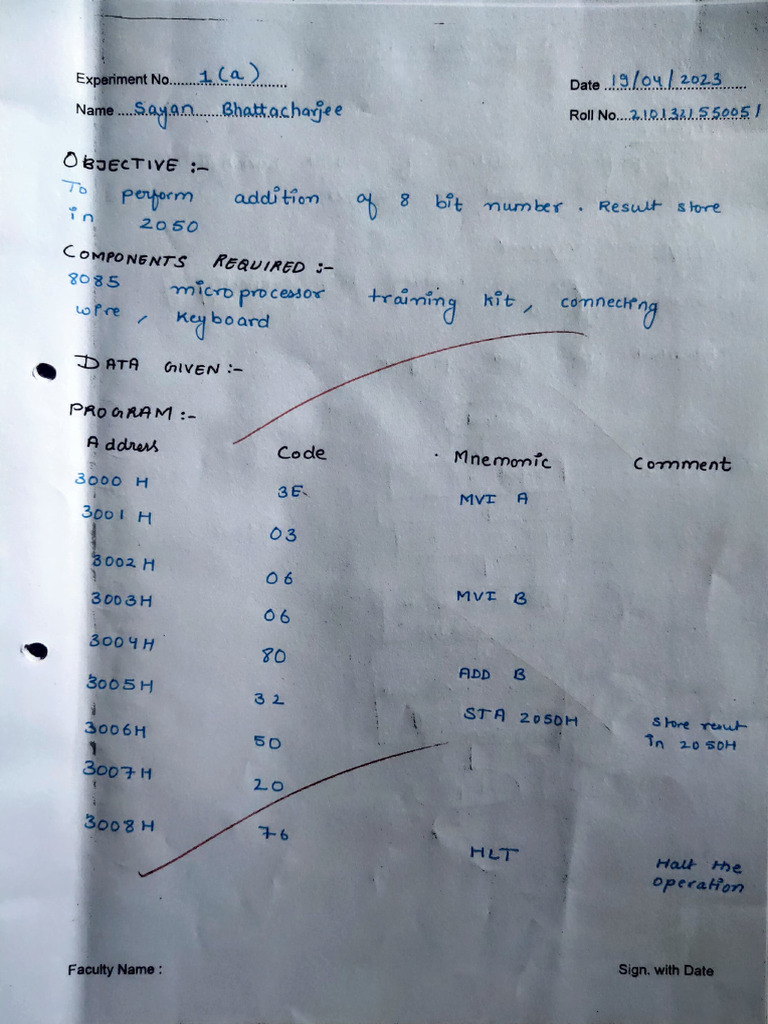 Experiment No. 1(a) Date 19/04/2023
Name Sayan Bhattacharjee Roll No. 2101321550051
OBJECTIVE :-
To perform addition of 8 bit number. Result store
in 2050
COMPONENTS REQUIRED :-
8085 microprocessor training kit, connecting
wire, keyboard
DATA GIVEN :-
PROGRAM :-
Address Code Mnemonic Comment
3000 H 3E MVI A
3001 H 03
3002 H 06 MVI B
3003 H 06
3004 H 80 ADD B
3005 H 32 STA 2050H Store result
3006 H 50 in 2050H
3007 H 20
3008 H 76 HLT Halt the
operation
Faculty Name : Sign. with Date